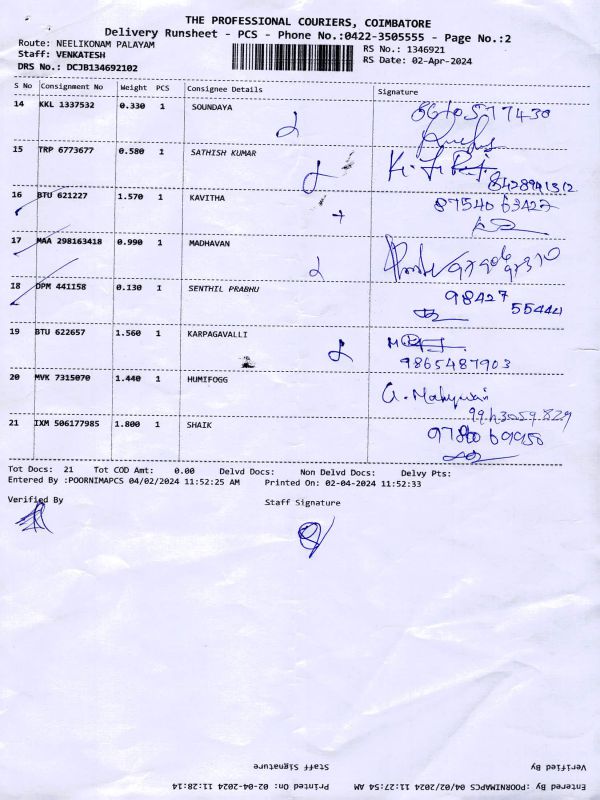 THE PROFESSIONAL COURIERS, COIMBATORE
Delivery Runsheet - PCS - Phone No.:0422-3505555 - Page No.:2
Route: NEELIKONAM PALAYAM
RS No.: 1346921
Staff: VENKATESH
RS Date: 02-Apr-2024
DRS No.: DCJB134692102
S No Consignment No Weight PCS Consignee Details Signature
14 KKL 1337532 0.330 1 SOUNDAYA
15 TRP 6773677 0.580 1 SATHISH KUMAR
16 BTU 621227 1.570 1 KAVITHA
87540 63422
17 MAA 298163418 0.990 1 MADHAVAN
18 DPM 441158 0.130 1 SENTHIL PRABHU
98427 55444
19 BTU 622657 1.560 1 KARPAGAVALLI
9865487903
20 MVK 7315070 1.440 1 HUMIFOGG
21 IXM 506177985 1.800 1 SHAIK
Tot Docs: 21 Tot COD Amt: 0.00 Delvd Docs: Non Delvd Docs: Delvy Pts:
Entered By :POORNIMAPCS 04/02/2024 11:52:25 AM Printed On: 02-04-2024 11:52:33
Verified By Staff Signature
Verified By Staff Signature
Entered By :POORNIMAPCS 04/02/2024 11:27:54 AM Printed On: 02-04-2024 11:28:14